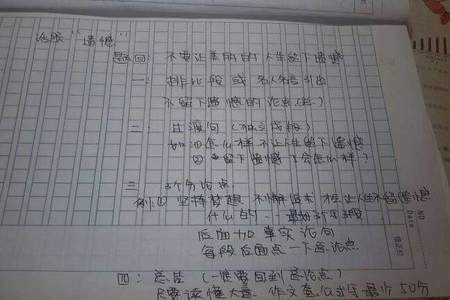 论段 "遗憾"
题目: 不要让美丽的人生留下遗憾
一: 排比段或名人名言引出
不留下遗憾的论点(总)
二: 过渡句
如①怎么样不让人生留下遗憾
②留下遗憾了会怎么样?
三: 3个分论点
例: ① 坚持梦想 不懈追求 才让人生不留遗憾
什么的
后面加事实论句
每段后面点一下总论点
四: 总结 (一定要回到总论点)
只要读懂大意, 作文
最少50分